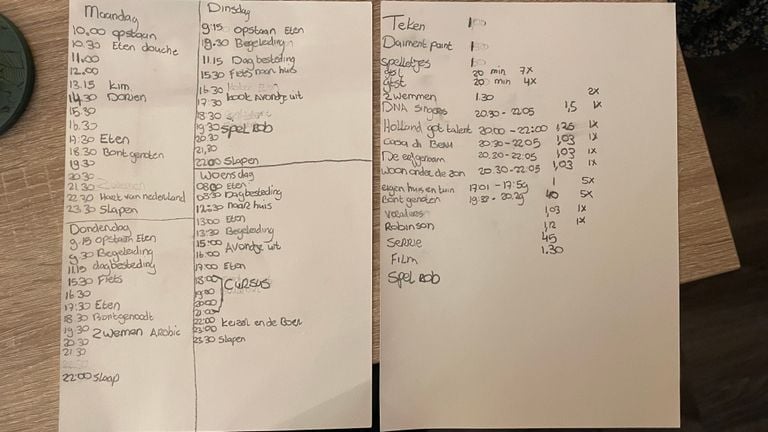 Maandag
10.00 opstaan
10.30 Eten douche
11.00
12.00
13.15 Kim
14.30 Dorien
15.30
16.30
17.30 Eten
18.30 Bontgenoten
19.30
20.30
21.30 Zwemen
22.30 Hart van nederland
23.30 Slapen
Donderdag
9.15 opstaan Eten
9.30 Begeleding
11.15 dagbesteding
15.30 Fiets
16.30
17.30 Eten
18.30 Bontgenoodt
19.30 Zwemen Arobic
20.30
21.30
22:00 Slaap
Dinsdag
9:15 opstaan Eten
9.30 Begeleding
11.15 Dagbesteding
15.30 Fiets naar huis
16.30
17:30 kookt Avondje uit
18:30
19:30 Spel Rob
20.30
21,30
22:00 Slapen
Woensdag
08:00 Eten
08:30 Dagbesteding
12:30 naar huis
13:00 Eten
13:30 Begeleding
15:00 Avondje uit
16:00
17:00 Eten
18:00 Cursus
19:00
20:00
21:00
22:00 Keizer en de Boer
23:00
23:30 Slapen
Teken
Daiment paint
Spelletjes
20 min 7x
20 min 4x
Zwemmen 1.30 2x
DNA Singers 20.30 - 22.05 1,5 1x
Holland got talent 20:00 - 22:00 1,25 1x
Casa di Beau 20.30 - 22:05 1,03 1x
De eeligeraem 20.30 - 22:05 1,03 1x
Woon onder de zon 20.30 - 22:05 1,03 1x
eigen huis en tuin 17.01 - 17:59 1 5x
Bontgenoten 19:52 - 20.29 40 5x
1,03 1x
Robinson 1,12 1x
Serrie 45
Film 1.30
Spel Rob